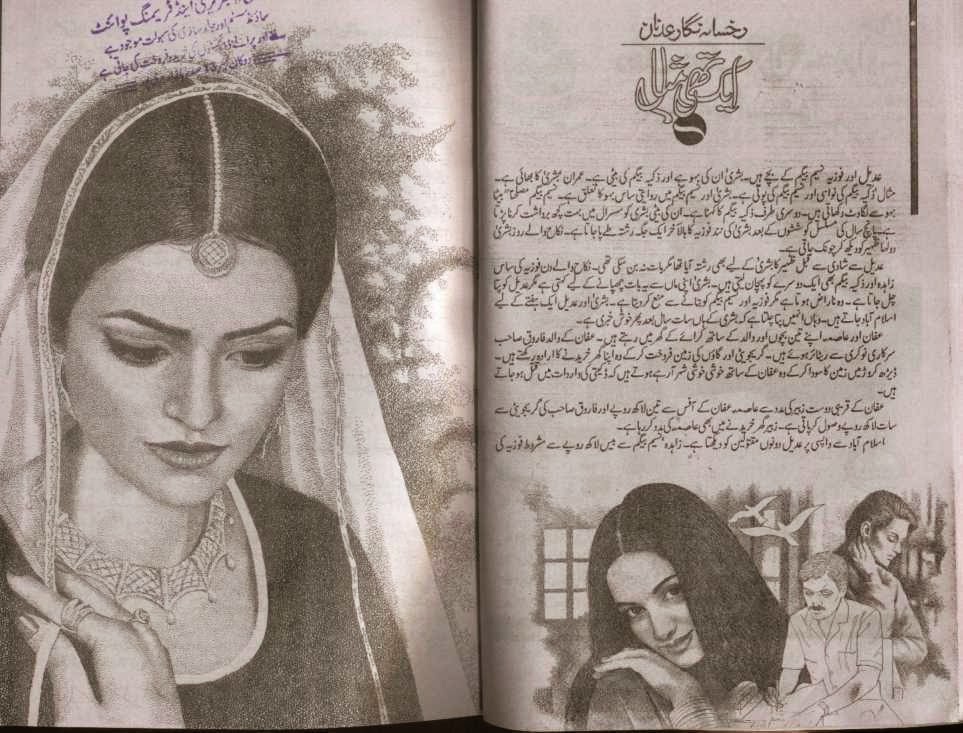 لائبریری اینڈ فریمنگ پوائنٹ
کی سہولت موجود ہے
فروخت کی جاتی ہے
رخسانہ نگار عدنان
ایک تھی مثال
عدیل اور فوزیہ نسیم بیگم کے بچے ہیں۔ بشریٰ ان کی بہو ہے اور ذکیہ بیگم کی بیٹی ہے۔ عمران بشریٰ کا بھائی ہے۔
مثال ذکیہ بیگم کی نواسی اور نسیم بیگم کی پوتی ہے۔ بشریٰ اور نسیم بیگم میں روایتی ساس بہو کا تعلق ہے۔ نسیم بیگم مصلحتاً بیٹا
بہو سے لگاوٹ دکھاتی ہیں۔ دوسری طرف ذکیہ بیگم کا کہنا ہے۔ ان کی بیٹی بشریٰ کو سسرال میں بہت کچھ برداشت کرنا پڑتا
ہے۔ پانچ سال کی مسلسل کوششوں کے بعد بشریٰ کی نند فوزیہ کا بالآخر ایک جگہ رشتہ طے پا جاتا ہے۔ نکاح والے روز بشریٰ
دولہا ظہیر کو دیکھ کر چونک جاتی ہے۔
عدیل سے شادی سے قبل ظہیر کا بشریٰ کے لیے بھی رشتہ آیا تھا مگر بات نہ بن سکی تھی۔ نکاح والے دن فوزیہ کی ساس
زاہدہ اور ذکیہ بیگم بھی ایک دوسرے کو پہچان لیتی ہیں۔ بشریٰ اپنی ماں سے یہ بات چھپانے کے لیے کہتی ہے مگر عدیل کو پتا
چل جاتا ہے۔ وہ ناراض ہوتا ہے مگر فوزیہ اور نسیم بیگم کو بتانے سے منع کر دیتا ہے۔ بشریٰ اور عدیل ایک ہفتے کے لیے
اسلام آباد جاتے ہیں۔ وہاں انہیں پتا چلتا ہے کہ بشریٰ کے ہاں سات سال بعد پھر خوش خبری ہے۔
عفان اور عاصمہ اپنے تین بچوں اور والد کے ساتھ کرائے کے گھر میں رہتے ہیں۔ عفان کے والد فاروق صاحب
سرکاری نوکری سے ریٹائر ہوئے ہیں۔ گریجویٹی اور گاؤں کی زمین فروخت کر کے وہ اپنا گھر خریدنے کا ارادہ رکھتے ہیں۔
ڈیڑھ کروڑ میں زمین کا سودا کر کے وہ عفان کے ساتھ خوشی خوشی شہر آ رہے ہوتے ہیں کہ ڈکیتی کی واردات میں قتل ہو جاتے
ہیں۔
عفان کے قریبی دوست زبیر کی مدد سے عاصمہ عفان کے آفس سے تین لاکھ روپے اور فاروق صاحب کی گریجویٹی سے
سات لاکھ روپے وصول کر پاتی ہے۔ زبیر گھر خریدنے میں بھی عاصمہ کی مدد کر رہا ہے۔
اسلام آباد سے واپسی پر عدیل دونوں مقتولین کو دیکھتا ہے۔ زاہدہ نسیم بیگم سے بیس لاکھ روپے سے مشروط فوزیہ کی